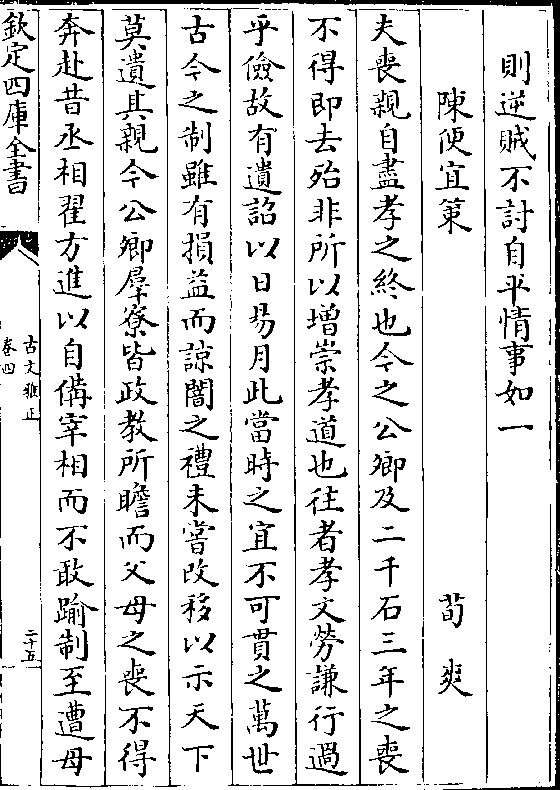 則逆賊不討自平情事如一
陳便宜策 荀爽
夫喪親自盡孝之終也今之公卿及二千石三年之喪
不得即去殆非所以增崇孝道也往者孝文勞謙行過
乎儉故有遺詔以日易月此當時之宜不可貫之萬世
古今之制雖有損益而諒闇之禮未嘗改移以示天下
莫遺其親今公卿羣寮皆政教所瞻而父母之喪不得
奔赴昔丞相翟方進以自備宰相而不敢踰制至遭母
欽定四庫全書
古文雅正
卷四
二十五